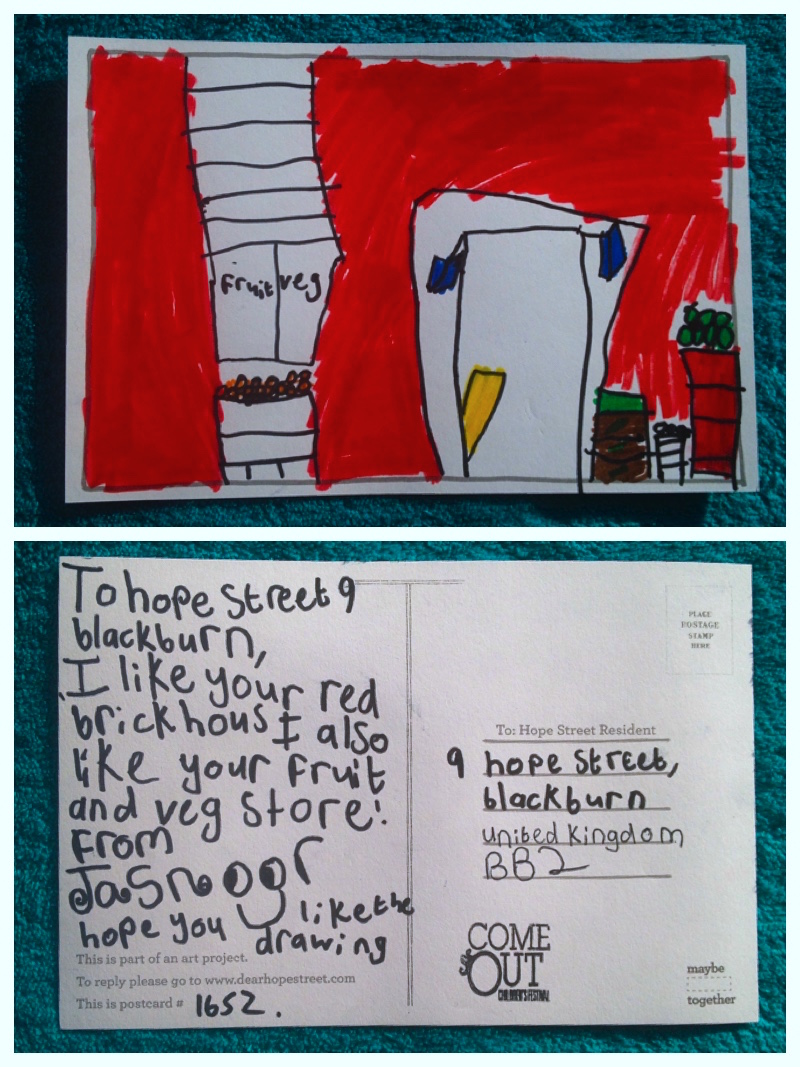 fruit veg
To hope Street 9
blackburn,
I like your red
brickhous I also
like your fruit
and veg store!
From
Jasnoor
hope you like the
drawing
This is part of an art project.
To reply please go to www.dearhopestreet.com
This is postcard # 1652.
PLACE
POSTAGE
STAMP
HERE
To: Hope Street Resident
9 hope Street,
blackburn
united Kingdom
BB2
COME
OUT
CHILDREN'S FESTIVAL
maybe
together